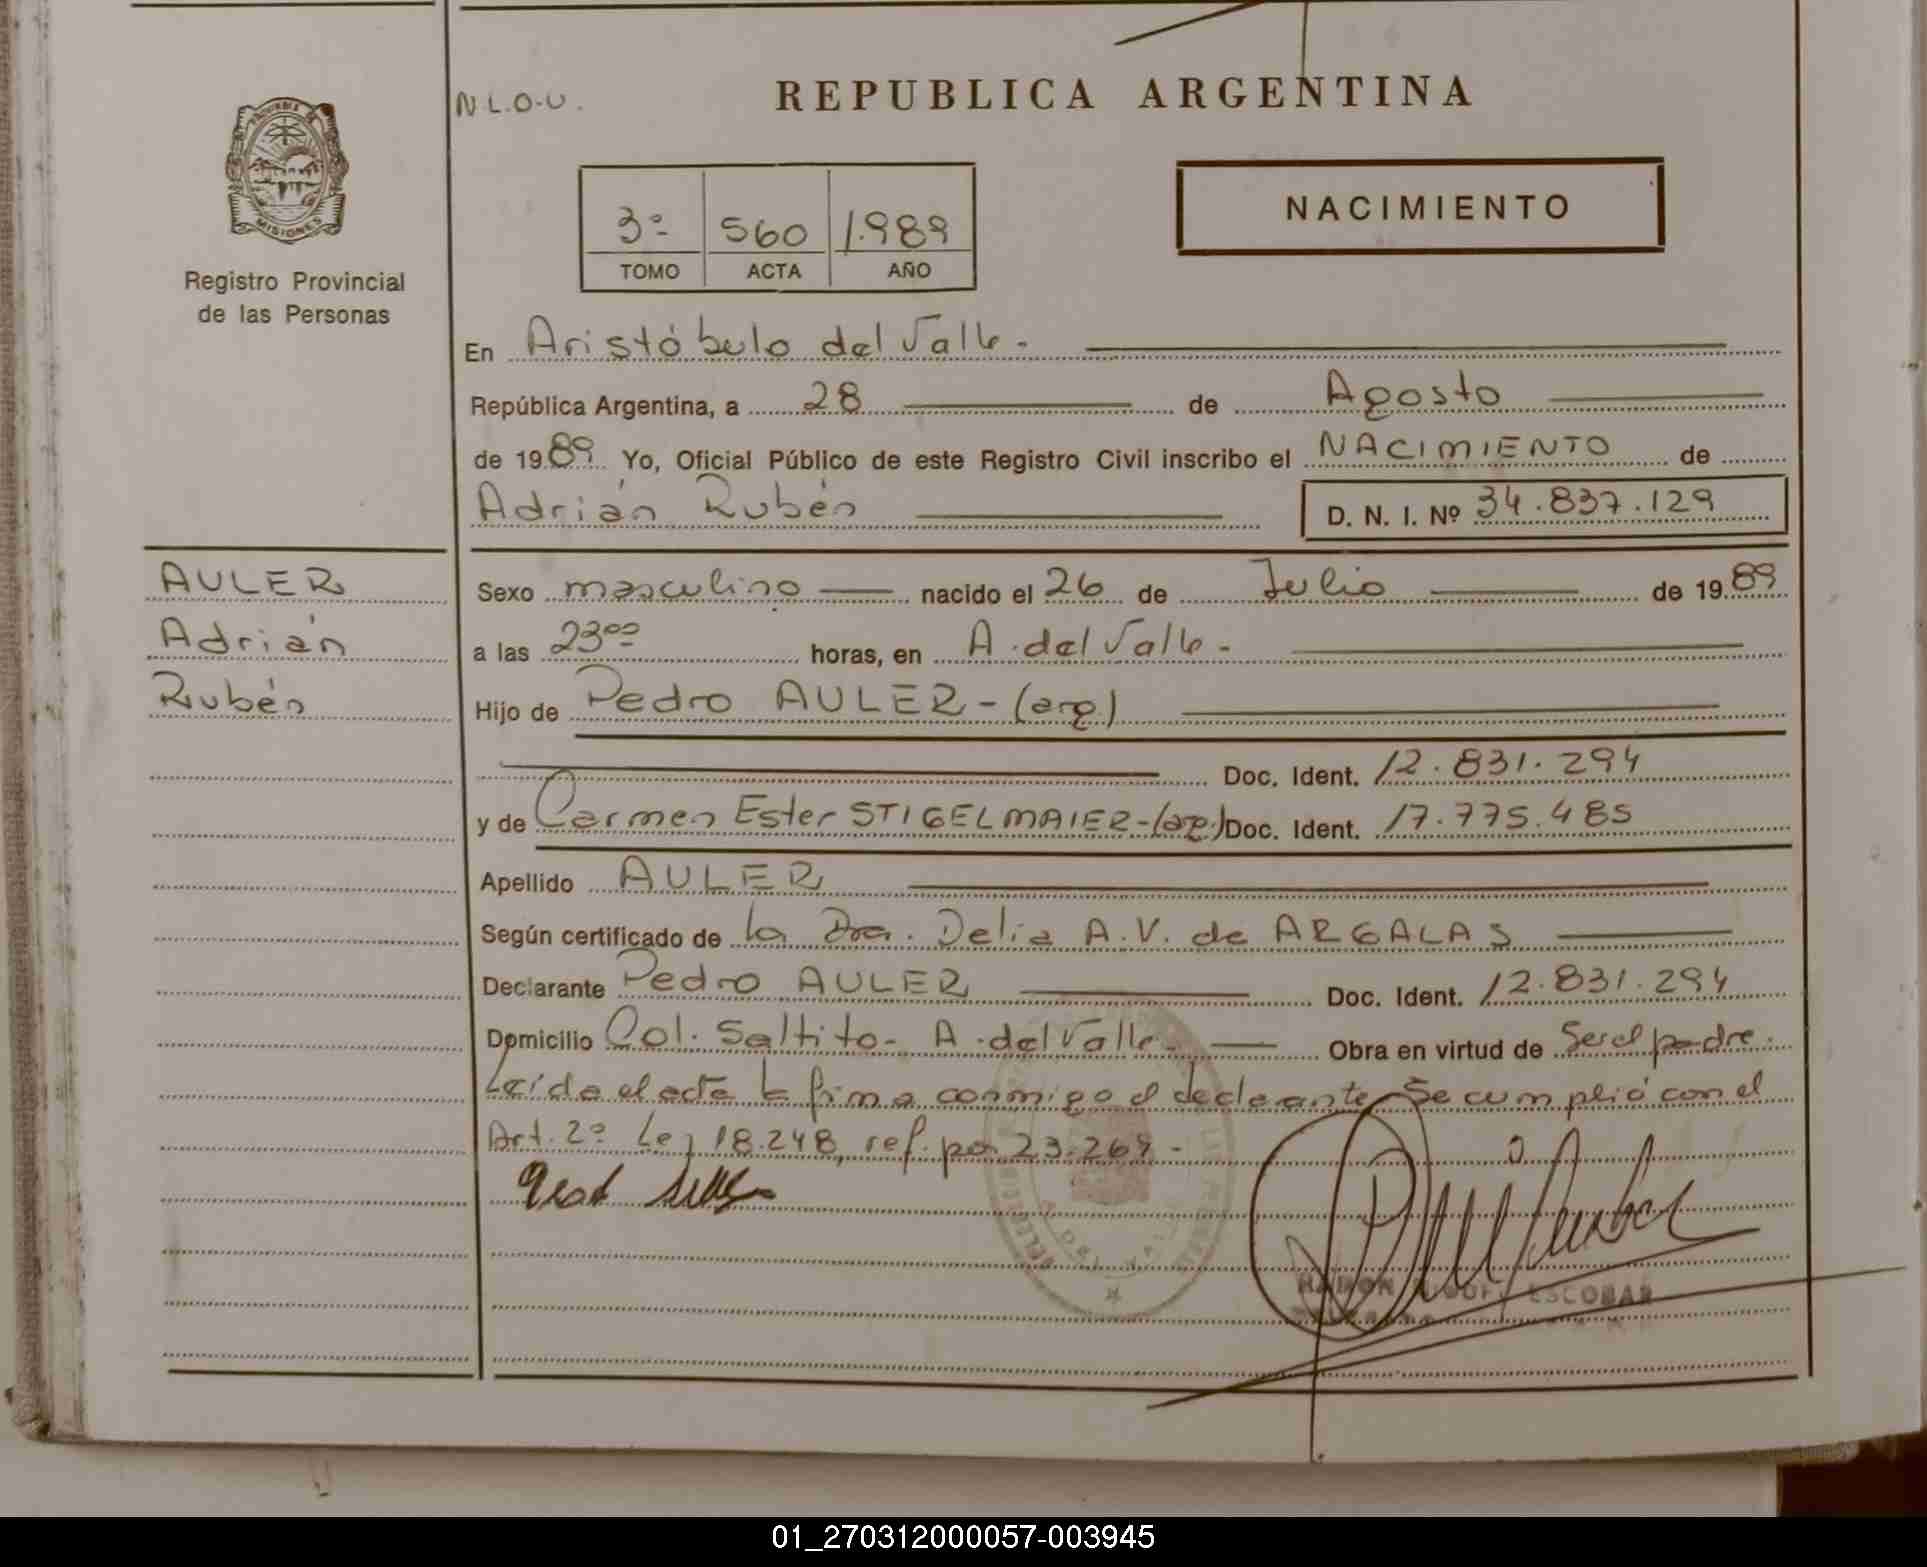 N.L.O.U.
REPUBLICA ARGENTINA
MISIONES
Registro Provincial
de las Personas
3º 560 1.989
TOMO ACTA AÑO
NACIMIENTO
En Aristóbulo del Valle.
República Argentina, a 28 de Agosto
de 1989 Yo, Oficial Público de este Registro Civil inscribo el NACIMIENTO de
Adrián Rubén D. N. I. Nº 34.837.129
AULER
Adrián
Rubén
Sexo masculino nacido el 26 de Julio de 1989
a las 23ºº horas, en A. del Valle.
Hijo de Pedro AULER - (arg.)
Doc. Ident. 12.831.294
y de Carmen Ester STIGELMAIER - (arg.) Doc. Ident. 17.775.485
Apellido AULER
Según certificado de la Dra. Delia A.V. de ARGALAS
Declarante Pedro AULER Doc. Ident. 12.831.294
Domicilio Col. Saltito - A. del Valle - Obra en virtud de Ser el padre.
Leída el acta la firma conmigo el declarante. Se cumplió con el
Art. 2º Ley 18.248, ref. por 23.264 -
ESCOBAR
01_270312000057-003945